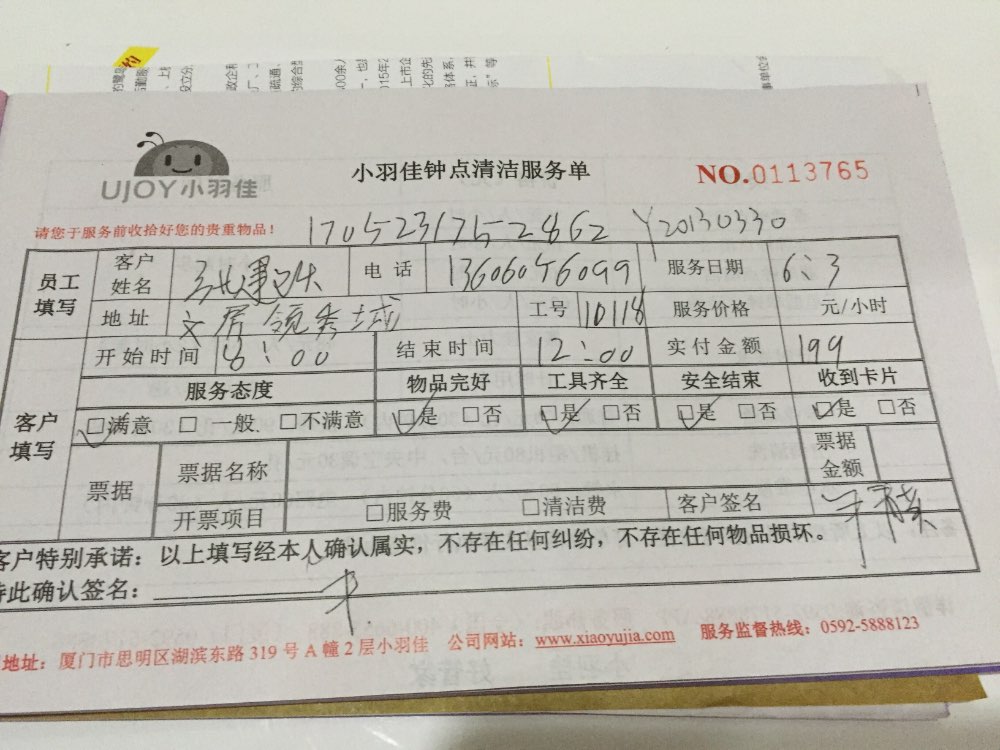 UJOY小羽佳
小羽佳钟点清洁服务单
NO.0113765
请您于服务前收拾好您的贵重物品！
1705231752862 Y20130330
员工填写 客户姓名 电话 13606046099 服务日期 6:3
地址 文屏领秀城 工号 10118 服务价格 元/小时
客户填写 开始时间 8:00 结束时间 12:00 实付金额 199
服务态度 物品完好 工具齐全 安全结束 收到卡片
☑满意 □一般 □不满意 ☑是 □否 ☑是 □否 ☑是 □否 ☑是 □否
票据 票据名称 票据金额
开票项目 □服务费 □清洁费 客户签名
客户特别承诺：以上填写经本人确认属实，不存在任何纠纷，不存在任何物品损坏。
特此确认签名：
地址：厦门市思明区湖滨东路 319 号 A 幢 2 层小羽佳 公司网站：www.xiaoyujia.com 服务监督热线：0592-5888123